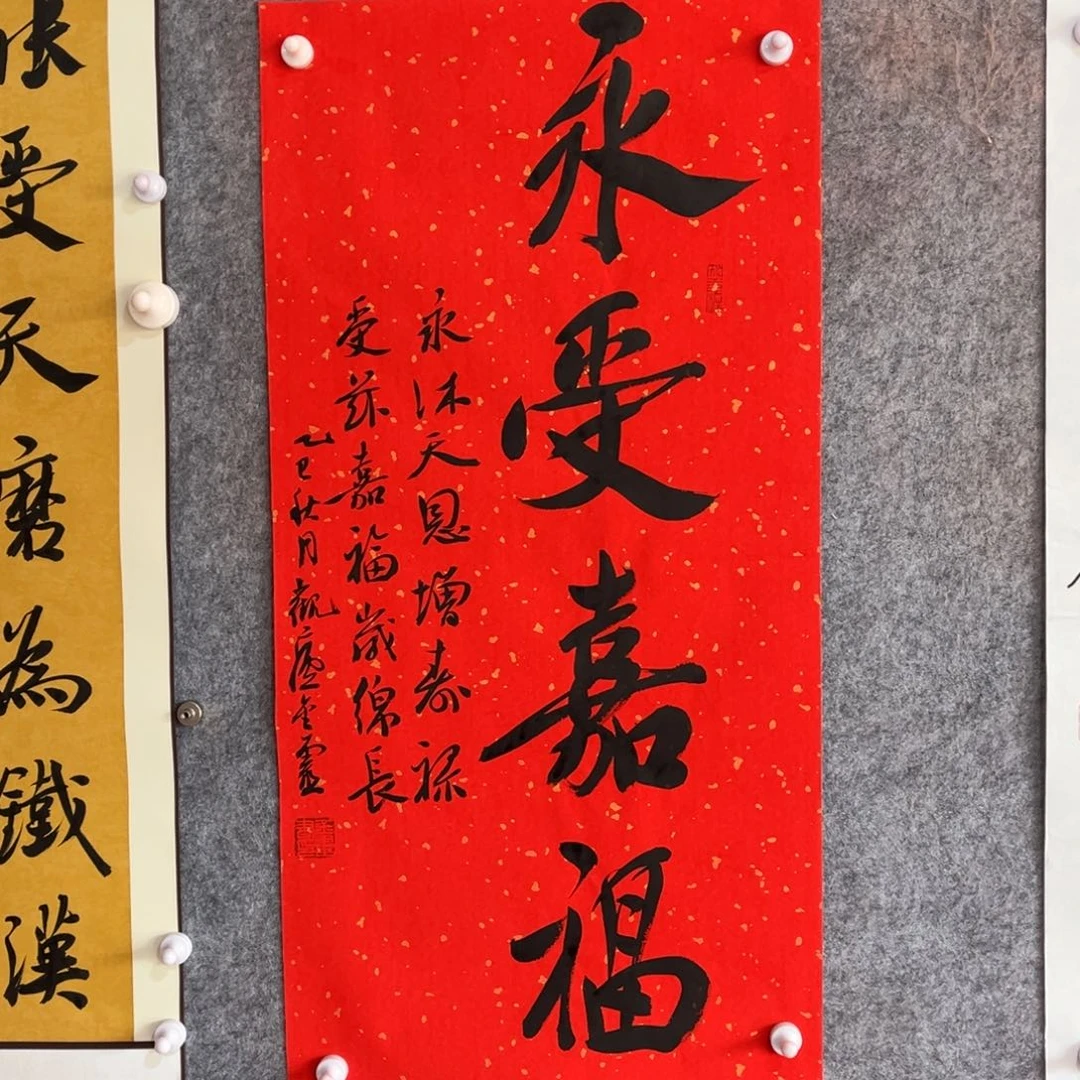 永受嘉福
永沐天恩增壽祿
受茲嘉福歲綿長
乙巳秋月觀廬
受天磨為鐵漢